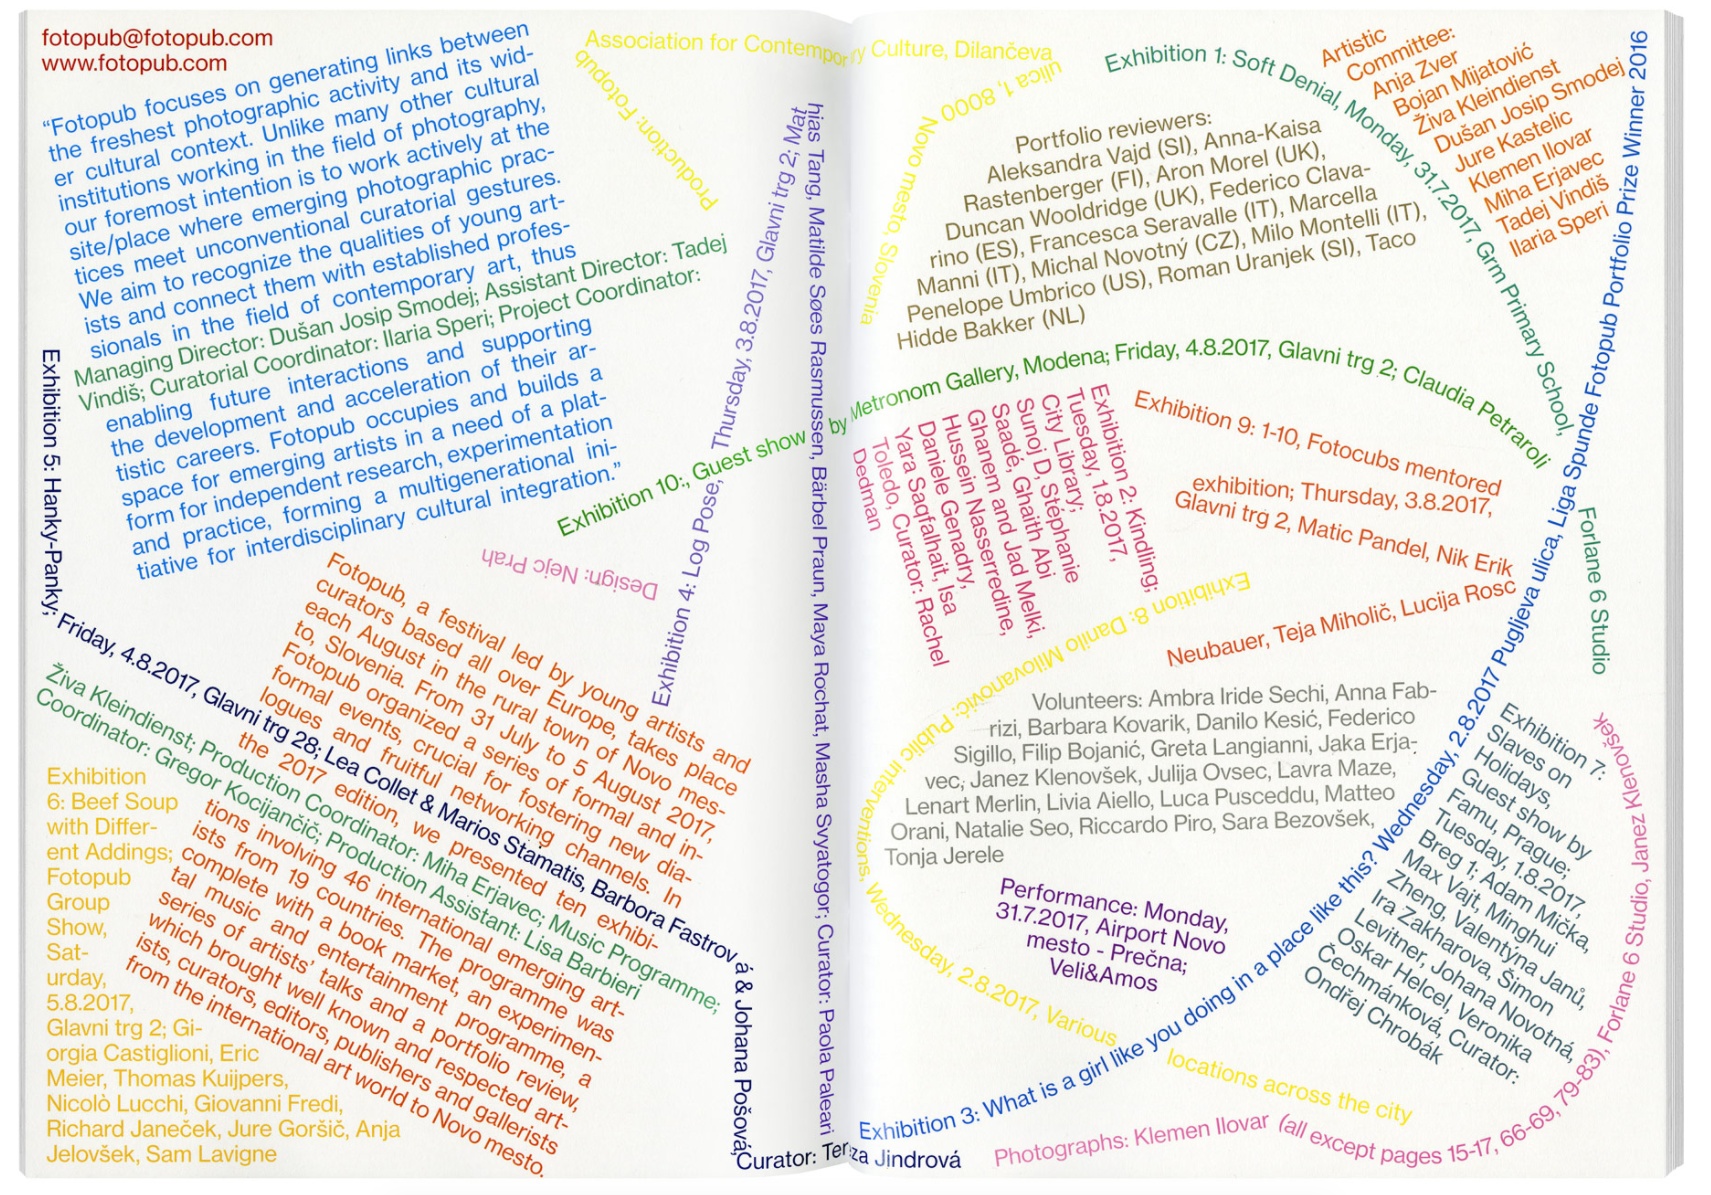 fotopub@fotopub.com
www.fotopub.com
“Fotopub focuses on generating links between
the freshest photographic activity and its wid-
er cultural context. Unlike many other cultural
institutions working in the field of photography,
our foremost intention is to work actively at the
site/place where emerging photographic prac-
tices meet unconventional curatorial gestures.
We aim to recognize the qualities of young art-
ists and connect them with established profes-
sionals in the field of contemporary art, thus
enabling future interactions and supporting
the development and acceleration of their ar-
tistic careers. Fotopub occupies and builds a
space for emerging artists in a need of a plat-
form for independent research, experimentation
and practice, forming a multigenerational ini-
tiative for interdisciplinary cultural integration.”
Managing Director: Dušan Josip Smodej; Assistant Director: Tadej
Vindiš; Curatorial Coordinator: Ilaria Speri; Project Coordinator:
Živa Kleindienst; Production Coordinator: Miha Erjavec; Music Programme;
Coordinator: Gregor Kocijančič; Production Assistant: Lisa Barbieri
Production: Fotopub
Association for Contemporary Culture, Dilančeva
ulica 1, 8000
Novo mesto, Slovenia
Design: Nejc Prah
Fotopub, a festival led by young artists and
curators based all over Europe, takes place
each August in the rural town of Novo mes-
to, Slovenia. From 31 July to 5 August 2017,
Fotopub organized a series of formal and in-
formal events, crucial for fostering new dia-
logues and fruitful networking channels. In
the 2017 edition, we presented ten exhibi-
tions involving 46 international emerging art-
ists from 19 countries. The programme was
complete with a book market, an experimen-
tal music and entertainment programme, a
series of artists’ talks and a portfolio review,
which brought well known and respected art-
ists, curators, editors, publishers and gallerists
from the international art world to Novo mesto.
Exhibition 5: Hanky-Panky;
Friday, 4.8.2017, Glavni trg 28; Lea Collet & Marios Stamatis, Barbora Fastrov
á & Johana Pošová;
Curator: Tereza Jindrová
Exhibition
6: Beef Soup
with Differ-
ent Addings;
Fotopub
Group
Show,
Sat-
urday,
5.8.2017,
Glavni trg 2; Gi-
orgia Castiglioni, Eric
Meier, Thomas Kuijpers,
Nicolò Lucchi, Giovanni Fredi,
Richard Janeček, Jure Goršič, Anja
Jelovšek, Sam Lavigne
Exhibition 4: Log Pose, Thursday, 3.8.2017, Glavni trg 2; Mat
hias Tang, Matilde Søes Rasmussen, Bärbel Praun, Maya Rochat, Masha Svyatogor; Curator: Paola Paleari
Exhibition 10:, Guest show by Metronom Gallery, Modena; Friday, 4.8.2017, Glavni trg 2; Claudia Petraroli
Portfolio reviewers:
Aleksandra Vajd (SI), Anna-Kaisa
Rastenberger (FI), Aron Morel (UK),
Duncan Wooldridge (UK), Federico Clava-
rino (ES), Francesca Seravalle (IT), Marcella
Manni (IT), Michal Novotný (CZ), Milo Montelli (IT),
Penelope Umbrico (US), Roman Uranjek (SI), Taco
Hidde Bakker (NL)
Exhibition 1: Soft Denial, Monday, 31.7.2017, Grm Primary School,
Forlane 6 Studio
Artistic
Committee:
Anja Zver
Bojan Mijatović
Živa Kleindienst
Dušan Josip Smodej
Jure Kastelic
Klemen Ilovar
Miha Erjavec
Tadej Vindiš
Ilaria Speri
Exhibition 2: Kindling;
Tuesday, 1.8.2017,
City Library;
Sunoj D, Stéphanie
Saadé, Ghaith Abi
Ghanem and Jad Melki,
Hussein Nasserredine,
Daniele Genadry,
Yara Saqfalhait, Isa
Toledo, Curator: Rachel
Dedman
Exhibition 9: 1-10, Fotocubs mentored
exhibition; Thursday, 3.8.2017,
Glavni trg 2, Matic Pandel, Nik Erik
Neubauer, Teja Miholič, Lucija Rosc
Exhibition 8: Danilo Milovanović: Public interventions, Wednesday, 2.8.2017, Various
locations across the city
Volunteers: Ambra Iride Sechi, Anna Fab-
rizi, Barbara Kovarik, Danilo Kesić, Federico
Sigillo, Filip Bojanić, Greta Langianni, Jaka Erja-
vec, Janez Klenovšek, Julija Ovsec, Lavra Maze,
Lenart Merlin, Livia Aiello, Luca Pusceddu, Matteo
Orani, Natalie Seo, Riccardo Piro, Sara Bezovšek,
Tonja Jerele
Performance: Monday,
31.7.2017, Airport Novo
mesto - Prečna;
Veli&Amos
Exhibition 3: What is a girl like you doing in a place like this? Wednesday, 2.8.2017 Pugljeva ulica, Liga Spunde Fotopub Portfolio Prize Winner 2016
Exhibition 7:
Slaves on
Holidays,
Guest show by
Famu, Prague;
Tuesday, 1.8.2017,
Breg 1; Adam Mička,
Max Vajt, Minghui
Zheng, Valentýna Janů,
Ira Zakharova, Šimon
Levitner, Johana Novotná,
Oskar Helcel, Veronika
Čechmánková, Curator:
Ondřej Chrobák
Photographs: Klemen Ilovar (all except pages 15-17, 66-69, 79-83), Forlane 6 Studio, Janez Klenovšek